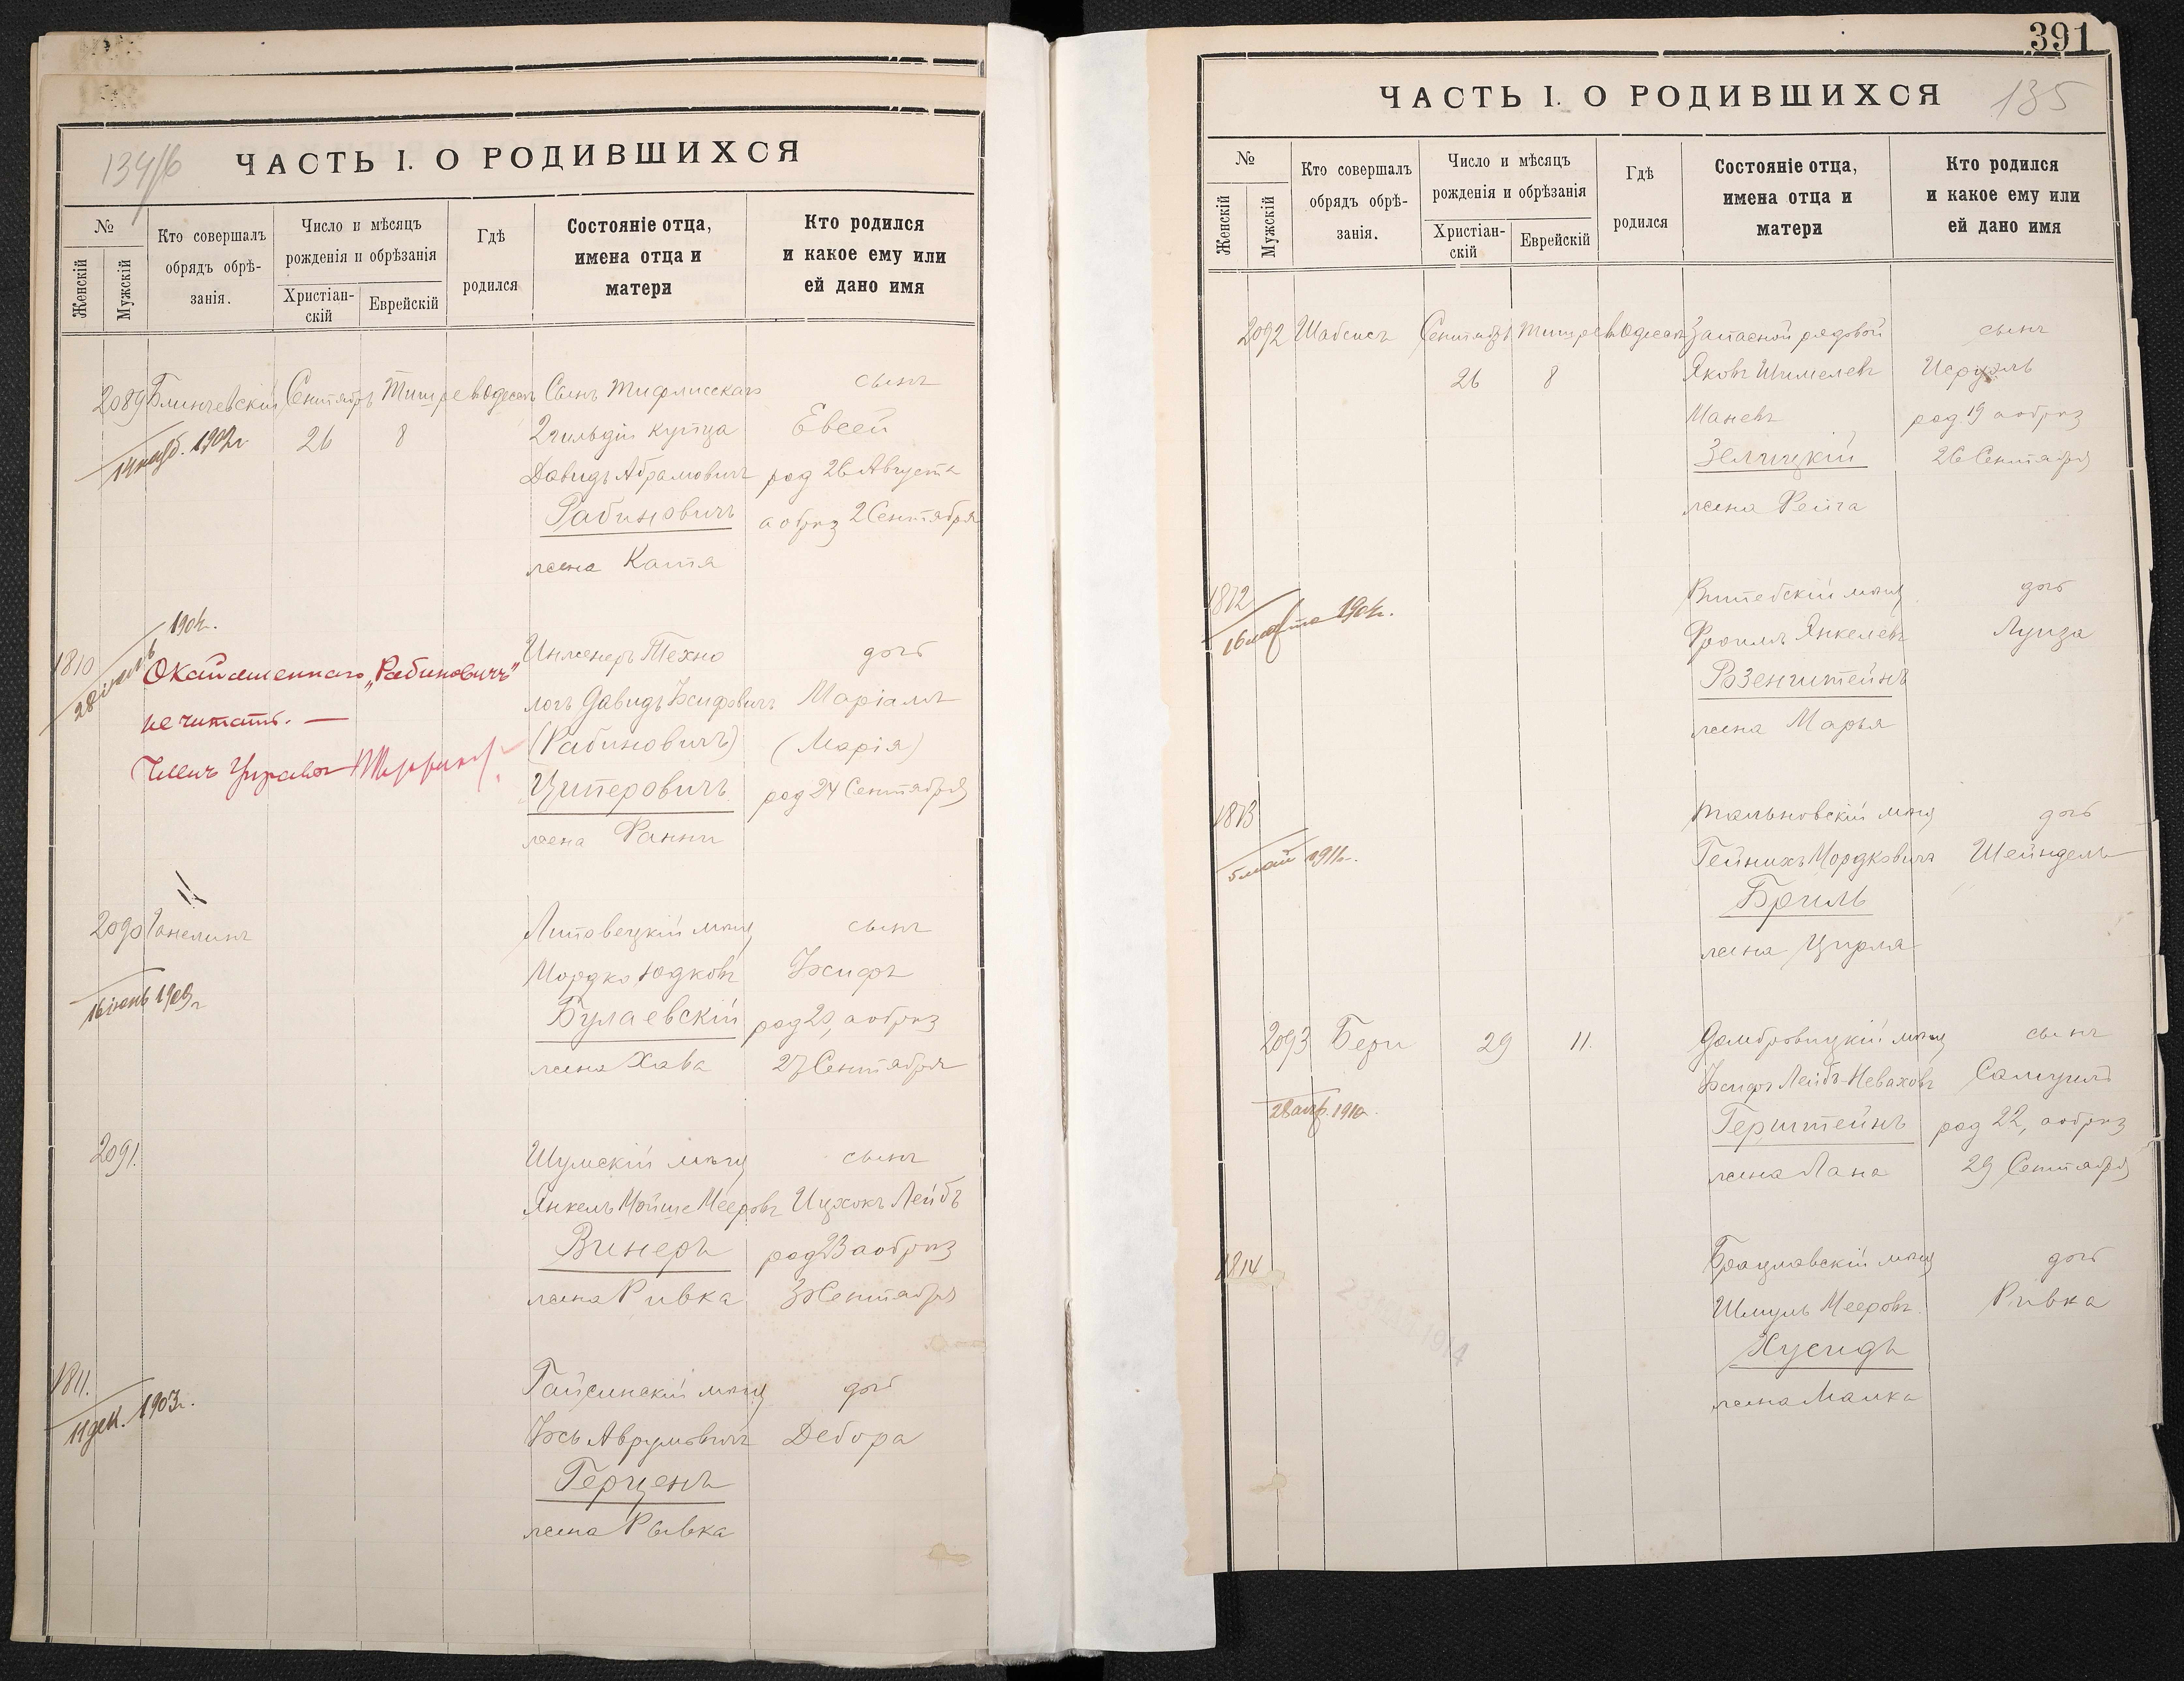 134/б
ЧАСТЬ I. О РОДИВШИХСЯ
№
Женскій
Мужскій
Кто совершалъ
обрядъ обрѣ-
занія.
Число и мѣсяцъ
рожденія и обрѣзанія
Христіан-
скій
Еврейскій
Гдѣ
родился
Состояніе отца,
имена отца и
матери
Кто родился
и какое ему или
ей дано имя
2089 Блинчевскій Сентябрь Тишре в Одессѣ Сынъ Тифлисскаго сынъ
1902г. 26 8 2 гильдіи купца Евсей
Давидъ Абрамовичъ род 26 Августа
Рабиновичъ а обрѣз 2 Сентября
жена Катя
1810
1904г.
Инженеръ Техно дочь
Окаймленнаго „Рабиновичъ"
логъ Давидъ Іосифовичъ Маріамъ
не читать. —
(Рабиновичъ) (Марія)
Членъ Управы
Циперовичъ род 24 Сентября
жена Фанни
2090 Ганелинъ Липовецкій мѣщ сынъ
Мордко Юдковъ Іосифъ
16 іюнь 1909г
Булаевскій род 20, а обрѣз
жена Хава 27 Сентября
2091. Шумскій мѣщ сынъ
Янкель Мойше Мееровъ Ицхокъ Лейбъ
Винеръ род 23 а обрѣз
жена Ривка 30 Сентября
1811. Гайсинскій мѣщ дочь
11 дек. 1903г.
Іось Аврумовичъ Дебора
Герценъ
жена Рывка
391
135
ЧАСТЬ I. О РОДИВШИХСЯ
№
Женскій
Мужскій
Кто совершалъ
обрядъ обрѣ-
занія.
Число и мѣсяцъ
рожденія и обрѣзанія
Христіан-
скій
Еврейскій
Гдѣ
родился
Состояніе отца,
имена отца и
матери
Кто родился
и какое ему или
ей дано имя
2092 Шабсисъ Сентябрь Тишре в Одессѣ Запасной рядовой сынъ
26 8 Яковъ Шимелевъ Исруэль
Маневъ род 19 а обрѣз
Зелицкій 26 Сентября
жена Рейга
1812 Витебскій мѣщ дочь
16 марта 1904г.
Фроимъ Янкелевъ Луиза
Розенштейнъ
жена Марья
1813 Тальновскій мѣщ дочь
5 май 1911г.
Гейнихъ Мордковичъ Шейндель
Бриль
жена Цирля
2093 Бери 29 11. Домбровицкій мѣщ сынъ
Іосифъ Лейбъ-Неваховъ Самуилъ
28 апр. 1910г.
Герштейнъ род 22, а обрѣз
жена Лана 29 Сентября
1814 Брацлавскій мѣщ дочь
Шмуль Мееровъ Ривка
Хусидъ
жена Малка